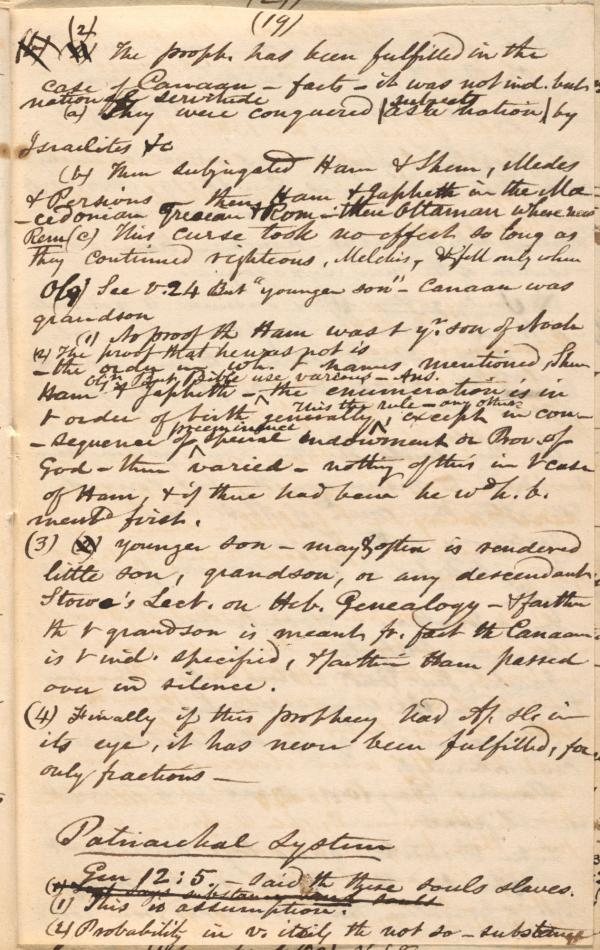 (19)
(2) The proph. has been fulfilled in the
case of Canaan - facts - it was not ind. but
national servitude
(a) They were conquered | as a nation | by
subjects
Israelites &c
(b) Then subjugated Ham & Shem, Medes
& Persians - then Ham & Japheth in the Ma-
-cedonian Grecian & Rom. - then Ottaman where now
Rem (c) This curse took no effect so long as
they continued righteous, Melchis, & fell only when
Obj See v. 24 But "younger son" - Canaan was
grandson
(1) No proof th Ham was t yr. son of Noah
(2) The proof that he was not is
- the order in wh. t names mentioned, Shem
Ham & Japheth - the enumeration is in
Obj. But, Bible use various - Ans.
t order of birth generally except in con-
This the rule - any other
- sequence of special endowment or Prov. of
preeminence
God - then varied - nothing of this in t case
of Ham, & if there had been he wd h. b.
mentd first.
(3) younger son - may & often is rendered
little son, grandson, or any descendant.
Stowe's Lect. on Heb. Genealogy - & farther
th t grandson is meant fr. fact th Canaan
is t ind. specified, & farther Ham passed
over in silence.
(4) Finally if this prophecy had Af. Sl. in
its eye, it has never been fulfilled, for
only fractions -
Patriarchal System
Gen 12:5. - said th these souls slaves.
(1) This is assumption.
(2) Probability in v. itself th not so - substance